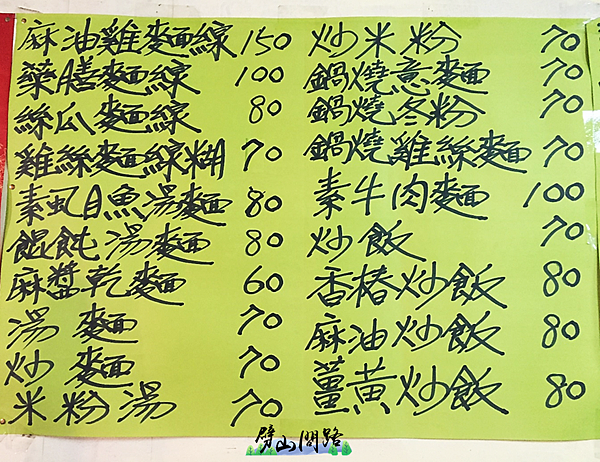 麻油雞麵線 150
藥膳麵線 100
絲瓜麵線 80
雞絲麵線糊 70
素虱目魚湯麵 80
餛飩湯麵 80
麻醬乾麵 60
湯麵 70
炒麵 70
米粉湯 70
炒米粉 70
鍋燒意麵 70
鍋燒冬粉 70
鍋燒雞絲麵 70
素牛肉麵 100
炒飯 70
香椿炒飯 80
麻油炒飯 80
薑黃炒飯 80
劈山問路